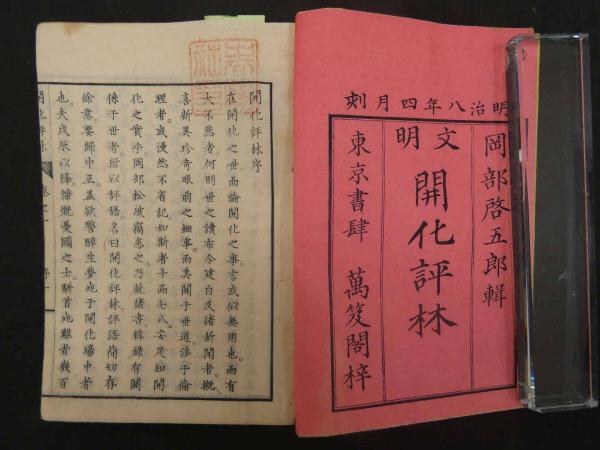 明治八年四月刻
岡部啓五郎輯
文明
開化評林
東京書肆
萬笈閣梓
開化評林序
在開化之世而論開化之事言或似無用也而有
大不然者何則世之讀布令建白及諸新聞者概
喜新異珍奇眼前之細事而其關于世道涉于倫
理者或漫然不省記如斯者十而七八安足知開
化之實乎岡部松坡竊患之乃就諸書輯錄有關
係于世者附以評語名曰開化評林評語簡切存
餘意要歸中正蓋欲警醉生夢死于開化場中者
也夫戊辰以降慷慨憂國之士駢首死難者幾百
開化評林
卷之一
序一